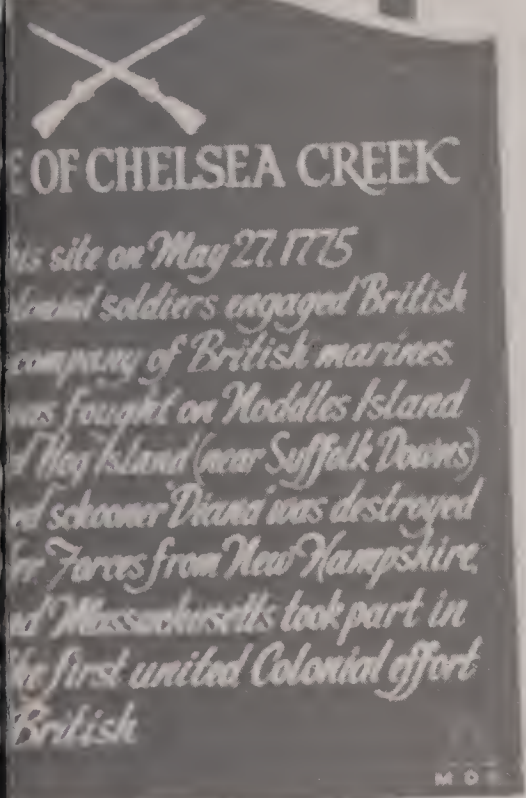 E OF CHELSEA CREEK
his site on May 27, 1775
lonial soldiers engaged British
ompany of British marines.
was fought on Noddles Island
d Hog Island (near Suffolk Downs)
ed schooner 'Diana' was destroyed
er Forces from New Hampshire,
nd Massachusetts took part in
he first united Colonial effort
British
M D